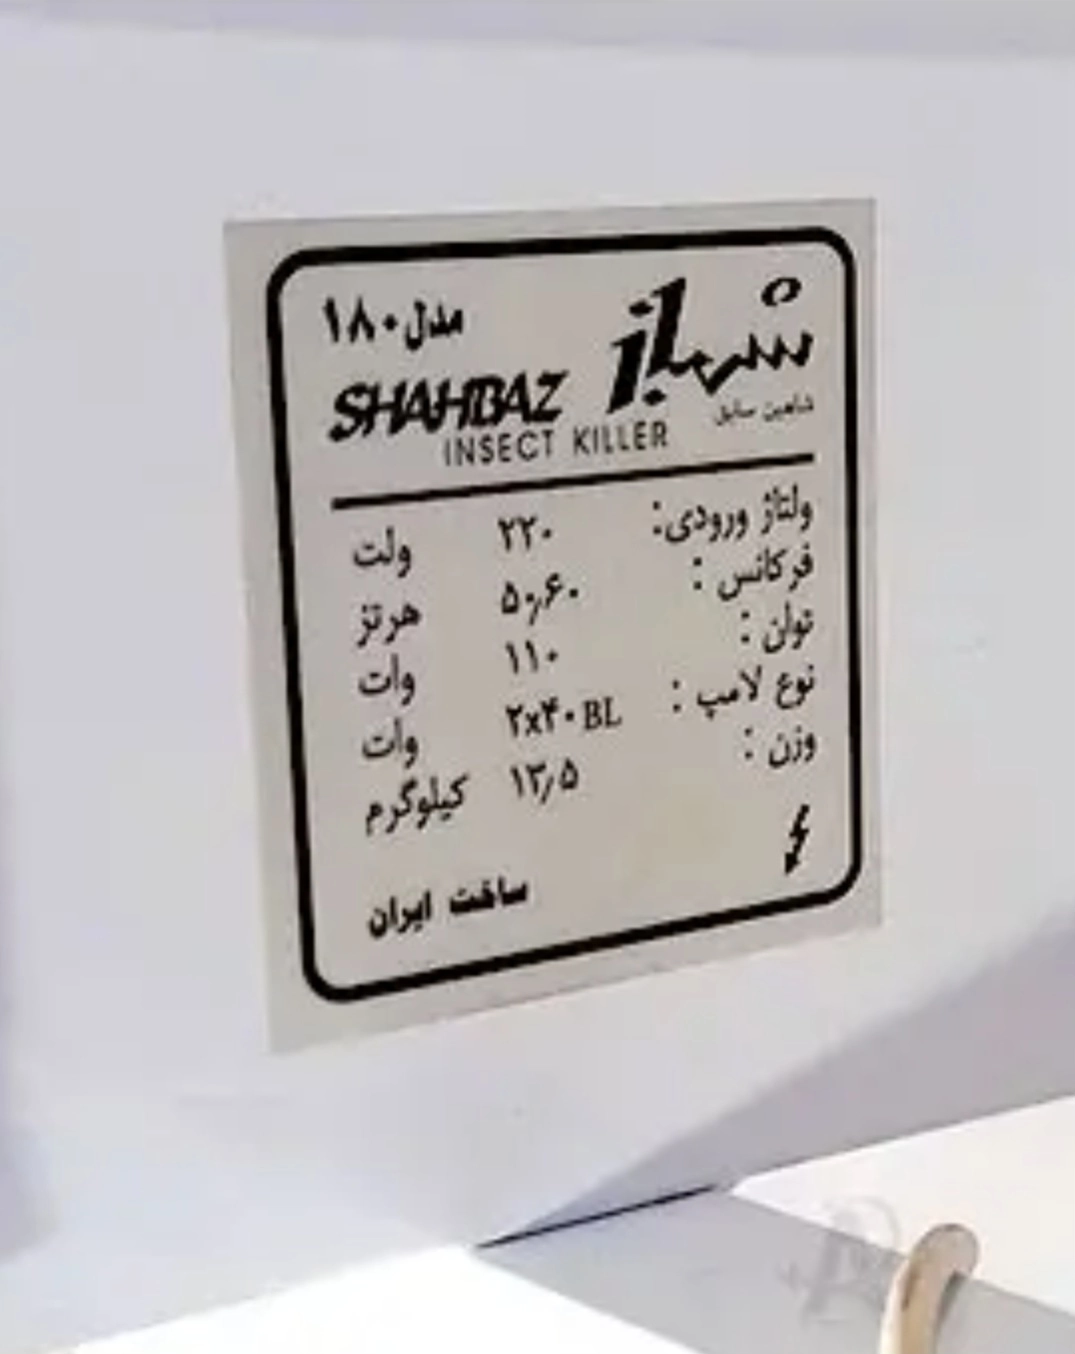 شهباز
مدل ۱۸۰
SHAHBAZ
شاهین سابق
INSECT KILLER
ولتاژ ورودی: ۲۲۰ ولت
فرکانس : ۵۰,۶۰ هرتز
توان : ۱۱۰ وات
نوع لامپ : ۲x۴۰ BL وات
وزن : ۱۳٫۵ کیلوگرم
ساخت ایران